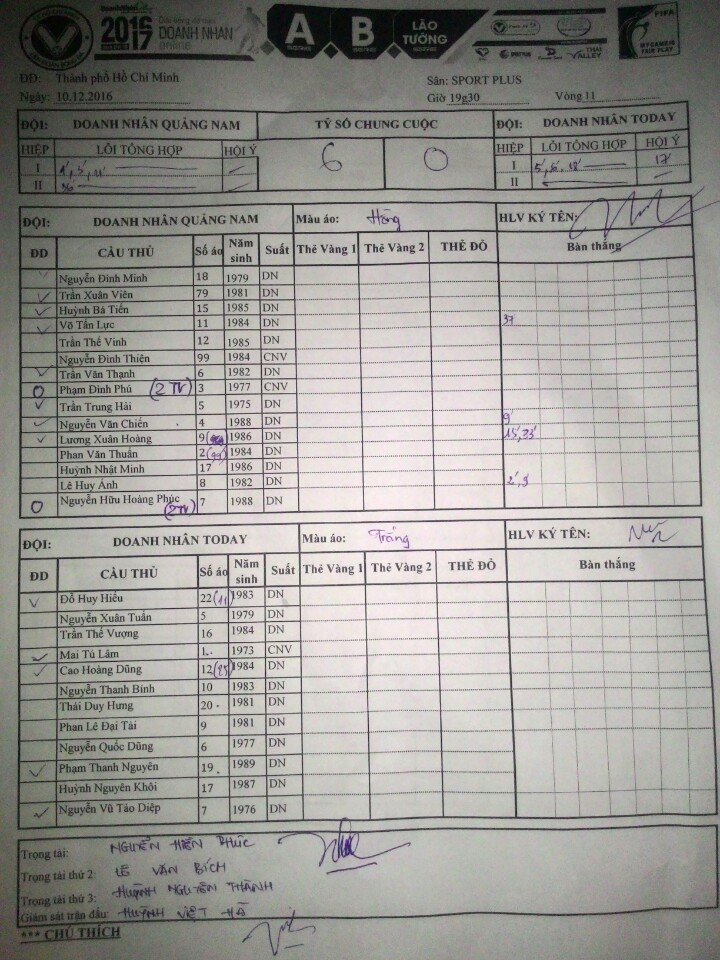 2016 2017 Giải bóng đá các DOANH NHÂN online
A B LÃO TƯỚNG
THAI VALLEY
FIFA MY GAME IS FAIR PLAY
ĐĐ: Thành phố Hồ Chí Minh Sân: SPORT PLUS
Ngày: 10.12.2016 Giờ 19g30 Vòng 11
ĐỘI: DOANH NHÂN QUẢNG NAM TỶ SỐ CHUNG CUỘC ĐỘI: DOANH NHÂN TODAY
HIỆP LỖI TỔNG HỢP HỘI Ý 6 0 HIỆP LỖI TỔNG HỢP HỘI Ý
I I 17'
II 36 II
ĐỘI: DOANH NHÂN QUẢNG NAM Màu áo: Hồng HLV KÝ TÊN:
ĐD CẦU THỦ Số áo Năm sinh Suất Thẻ Vàng 1 Thẻ Vàng 2 THẺ ĐỎ Bàn thắng
Nguyễn Đình Minh 18 1979 DN
Trần Xuân Viên 79 1981 DN
Huỳnh Bá Tiến 15 1985 DN
Võ Tấn Lực 11 1984 DN 37
Trần Thế Vinh 12 1985 DN
Nguyễn Đình Thiện 99 1984 CNV
Trần Văn Thạnh 6 1982 DN
Phạm Đình Phú (2 TV) 3 1977 CNV
Trần Trung Hải 5 1975 DN
Nguyễn Văn Chiến 4 1988 DN 9'
Lương Xuân Hoàng 9 1986 DN 15', 23'
Phan Văn Thuấn 2 (99) 1984 DN
Huỳnh Nhật Minh 17 1986 DN
Lê Huy Ánh 8 1982 DN
Nguyễn Hữu Hoàng Phúc (2TV) 7 1988 DN
ĐỘI: DOANH NHÂN TODAY Màu áo: Trắng HLV KÝ TÊN:
ĐD CẦU THỦ Số áo Năm sinh Suất Thẻ Vàng 1 Thẻ Vàng 2 THẺ ĐỎ Bàn thắng
Đỗ Huy Hiếu 22 (11) 1983 DN
Nguyễn Xuân Tuấn 5 1979 DN
Trần Thế Vượng 16 1984 DN
Mai Tú Lâm 1 1973 CNV
Cao Hoàng Dũng 12 (25) 1984 DN
Nguyễn Thanh Bính 10 1983 DN
Thái Duy Hưng 20 1981 DN
Phan Lê Đại Tài 9 1981 DN
Nguyễn Quốc Dũng 6 1977 DN
Phạm Thanh Nguyên 19 1989 DN
Huỳnh Nguyên Khôi 17 1987 DN
Nguyễn Vũ Táo Diệp 7 1976 DN
Trọng tài: NGUYỄN HIỀN PHÚC
Trọng tài thứ 2: LÊ VĂN BÍCH
Trọng tài thứ 3: HUỲNH NGUYÊN THÀNH
Giám sát trận đấu: HUỲNH VIỆT HÀ
*** CHÚ THÍCH